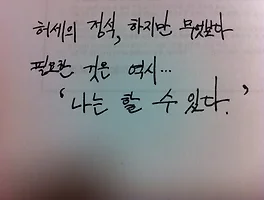 허세의 정석, 하지만 무엇보다
필요한 것은 역시...
'나는 할 수 있다.'